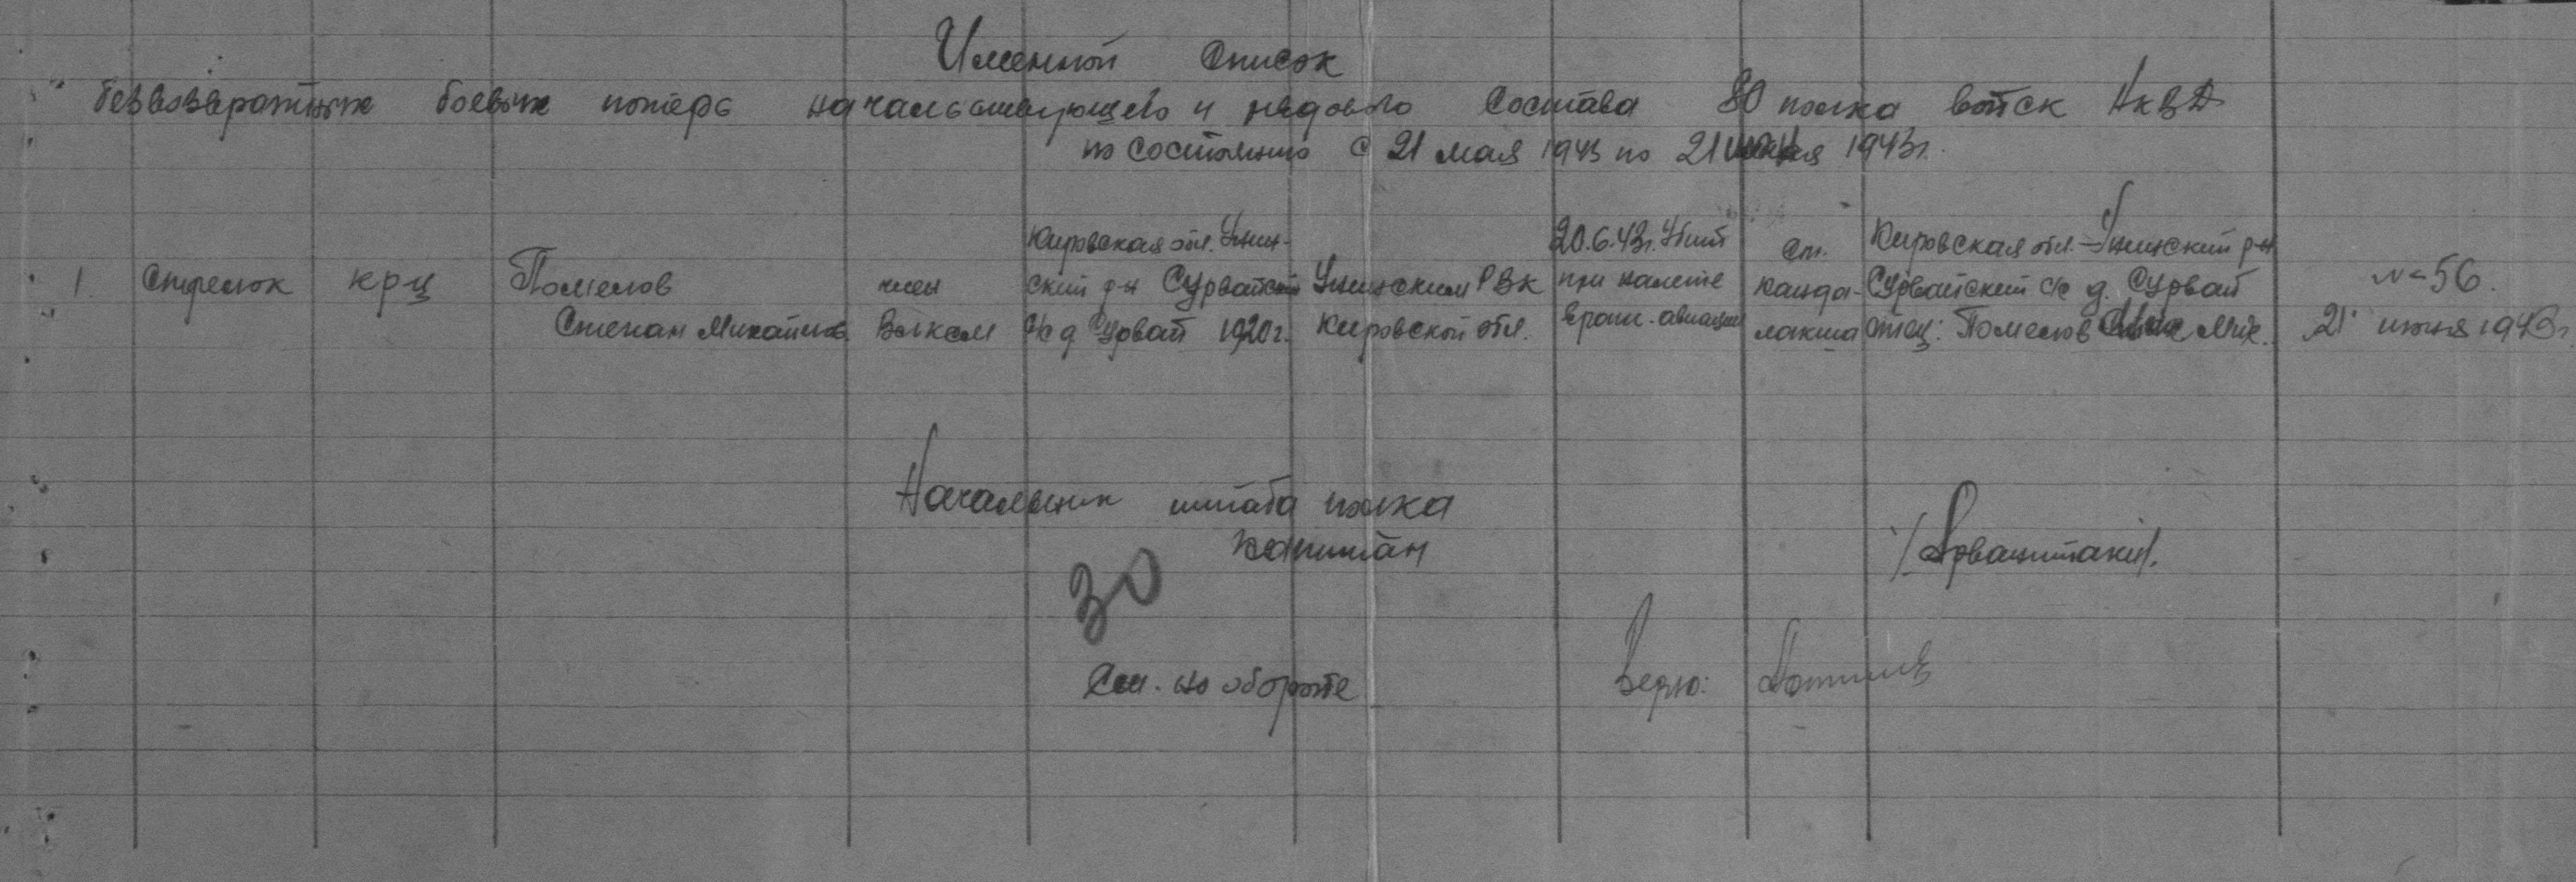 Именной список
безвозвратных боевых потерь начальствующего и рядового состава 80 полка войск НКВД
по состоянию с 21 мая 1943 по 21 июня 1943г.
1. Стрелок
кр-ц
Помелов
Степан Михайлов.
член
ВЛКСМ
Кировская обл. Унин-
ский р-н Сурвайский
с/с д Сурвай 1920г.
Унинским РВК
Кировской обл.
20.6.43г. Убит
при налете
враж. авиации
ст.
Канда-
лакша
Кировская обл. Унинский р-н
Сурвайский с/с д. Сурвай
отец: Помелов Мих.
№ 56.
21 июня 1943г.
Начальник штаба полка
капитан
30
См. на обороте
Верно: